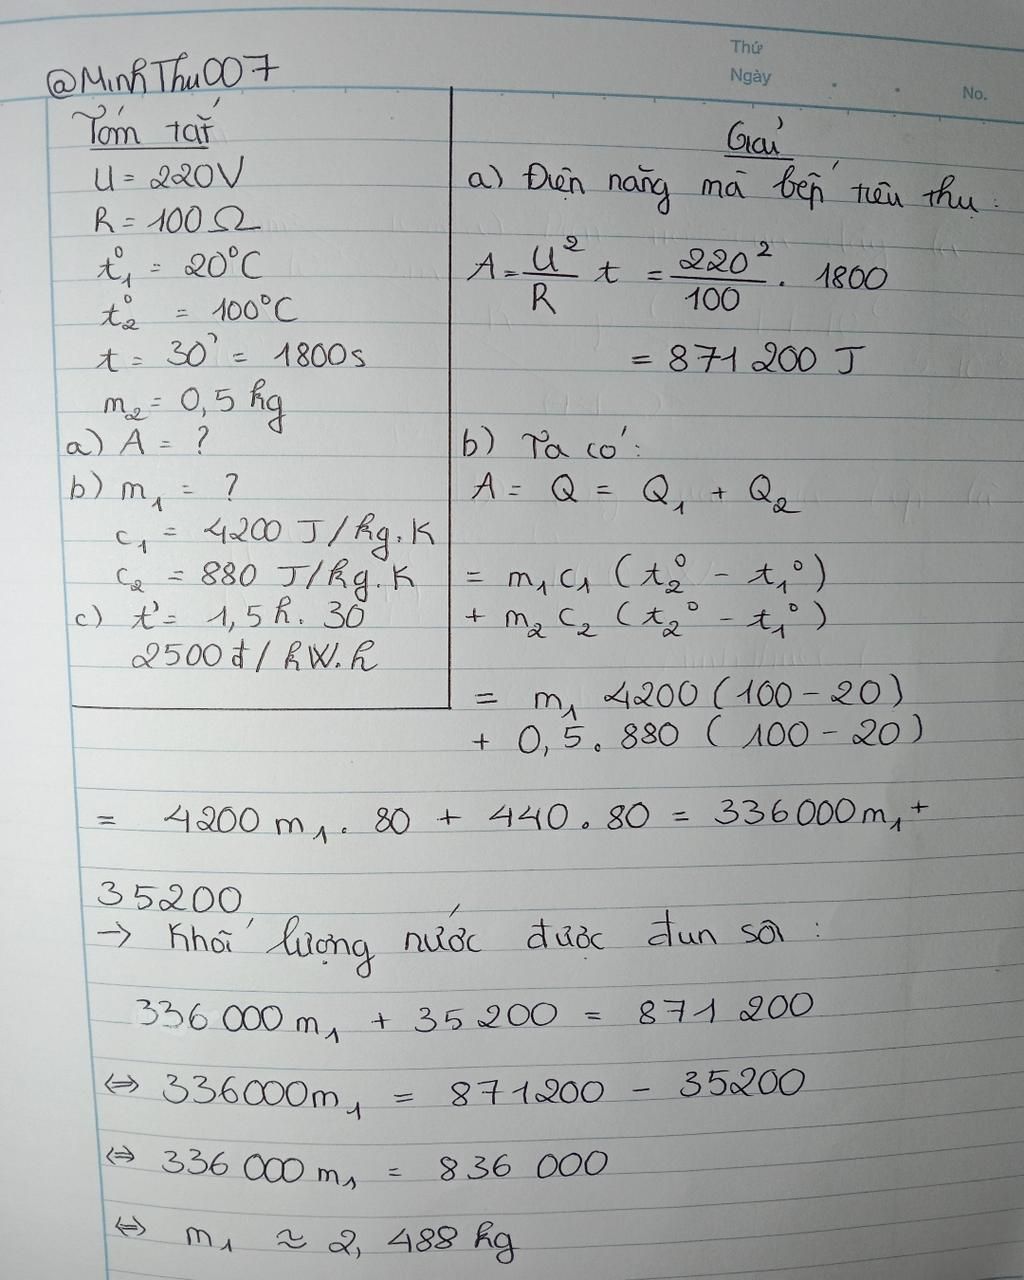 Thứ
Ngày
No.
@MinhThu007
Tóm tắt
U = 220V
R = 100Ω
t₁° = 20°C
t₂° = 100°C
t = 30' = 1800s
m₂ = 0,5 kg
a) A = ?
b) m₁ = ?
c₁ = 4200 J/kg.K
c₂ = 880 J/kg.K
c) t' = 1,5h. 30
2500đ/kW.h
Giải
a) Điện năng mà bếp tiêu thụ:
A = U²/R t = 220²/100 . 1800
= 871 200 J
b) Ta có:
A = Q = Q₁ + Q₂
= m₁ c₁ (t₂° - t₁°)
+ m₂ c₂ (t₂° - t₁°)
= m₁ 4200 (100 - 20)
+ 0,5 . 880 (100 - 20)
= 4200 m₁ . 80 + 440 . 80 = 336000 m₁ +
35200
→ Khối lượng nước được đun sôi :
336 000 m₁ + 35 200 = 871 200
⇔ 336000 m₁ = 871200 - 35200
⇔ 336 000 m₁ = 836 000
⇔ m₁ ≈ 2,488 kg